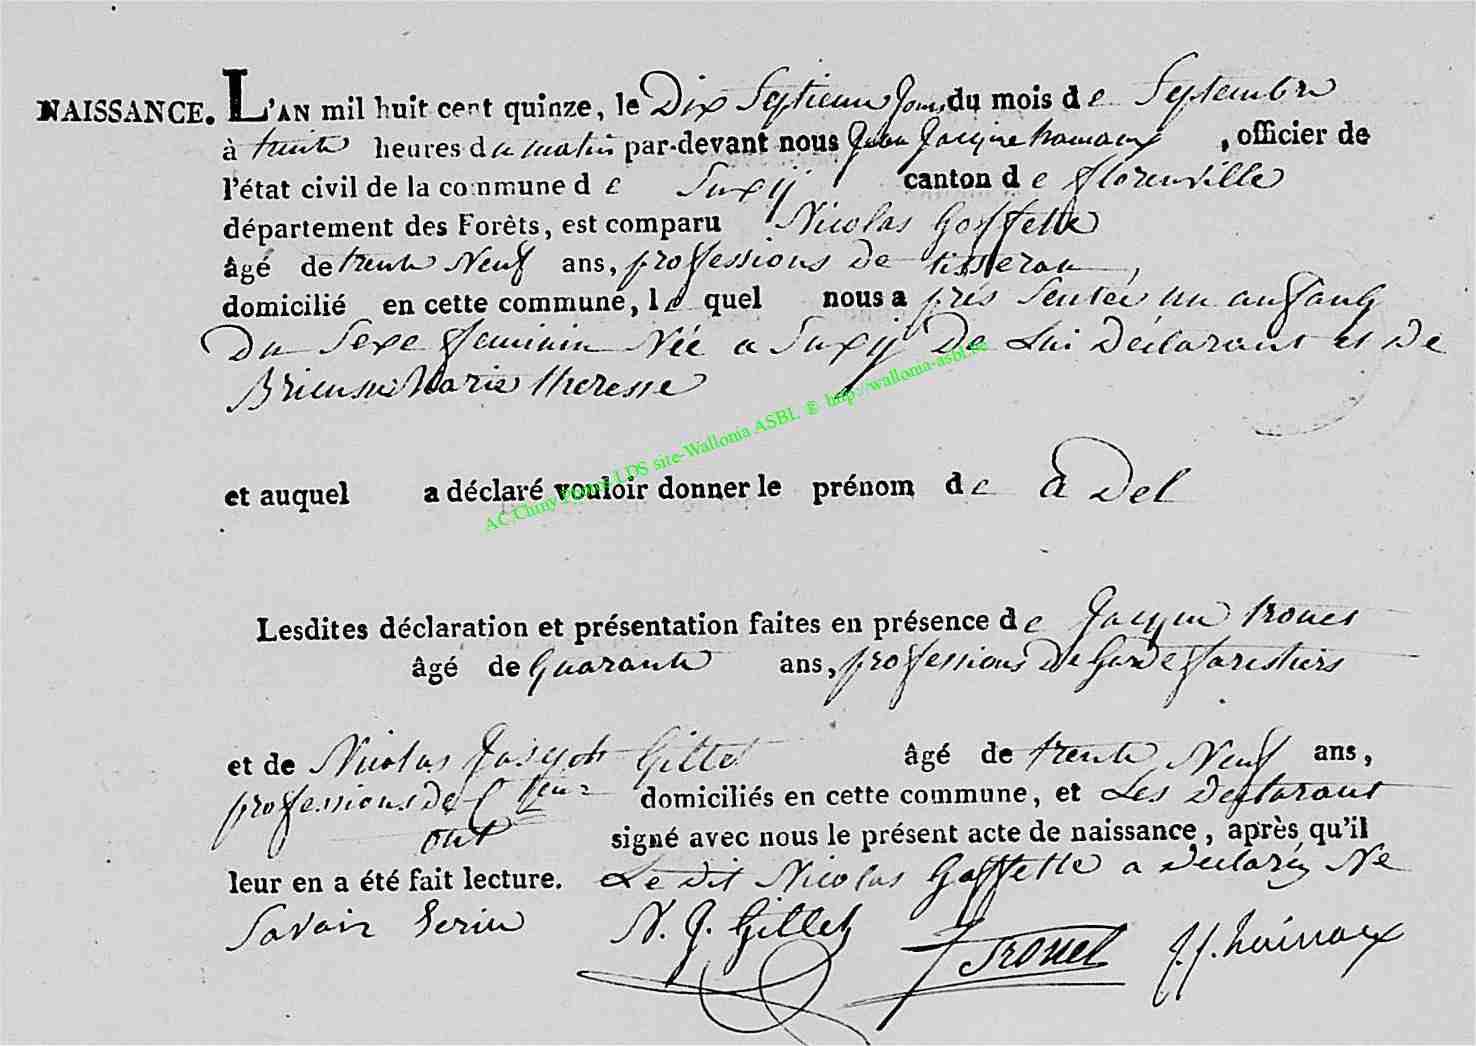 NAISSANCE. L'AN mil huit cent quinze, le Dix Septieme Jour du mois de Septembre
à huit heures du matin par-devant nous Jean Jacque hainaux, officier de
l'état civil de la commune de Suxÿ canton de florenville
département des Forêts, est comparu Nicolas Goffette
âgé de trente Neuf ans, professions de tisseran,
domicilié en cette commune, le quel nous a pres senter un anfant
Du Sexe feminin Née a Suxÿ De Lui Déclarant et De
Marie theresse
et auquel a déclaré vouloir donner le prénom de a Del
Lesdites déclaration et présentation faites en présence de Jacque trouet
âgé de Quarante ans, professions De Garde farestiers
et de Nicolas Joseph Gillet âgé de trente Neuf ans,
professions de domiciliés en cette commune, et Les Declarant
ont signé avec nous le présent acte de naissance, après qu'il
leur en a été fait lecture. Le dit Nicolas Goffette a declarez Ne
Savoir Ecrire N. J. Gillet J Trouet J. J. hainaux
AC Chiny LDS site-Wallonia ASBL @ http://wallonia-asbl.be